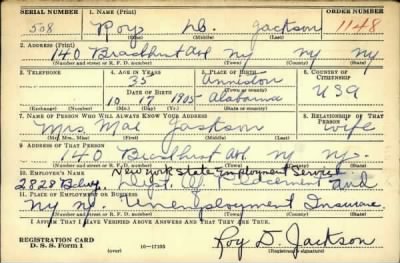 SERIAL NUMBER 1. NAME (Print) ORDER NUMBER
508 Roy D. Jackson 1148
(First) (Middle) (Last)
2. ADDRESS (Print)
140 Bradhurst Ave NY NY NY
(Number and street or R. F. D. number) (Town) (County) (State)
3. TELEPHONE 4. AGE IN YEARS 5. PLACE OF BIRTH 6. COUNTRY OF CITIZENSHIP
35 Anniston
DATE OF BIRTH (Town or county)
10 17 1905 Alabama USA
(Exchange) (Number) (Mo.) (Day) (Yr.) (State or country)
7. NAME OF PERSON WHO WILL ALWAYS KNOW YOUR ADDRESS 8. RELATIONSHIP OF THAT PERSON
Mrs. Mae Jackson wife
(Mr., Mrs., Miss) (First) (Middle) (Last)
9. ADDRESS OF THAT PERSON
140 Bradhurst Ave NY NY.
(Number and street or R. F. D. number) (Town) (County) (State)
10. EMPLOYER'S NAME New York State Employment Service
2828 Bdwy. Placement and
11. PLACE OF EMPLOYMENT OR BUSINESS
NY NY. Unemployment Insurance
(Number and street or R. F. D. number) (Town) (County) (State)
I AFFIRM THAT I HAVE VERIFIED ABOVE ANSWERS AND THAT THEY ARE TRUE.
REGISTRATION CARD
D. S. S. Form 1 (over) 16—17105 Roy D. Jackson
(Registrant's signature)